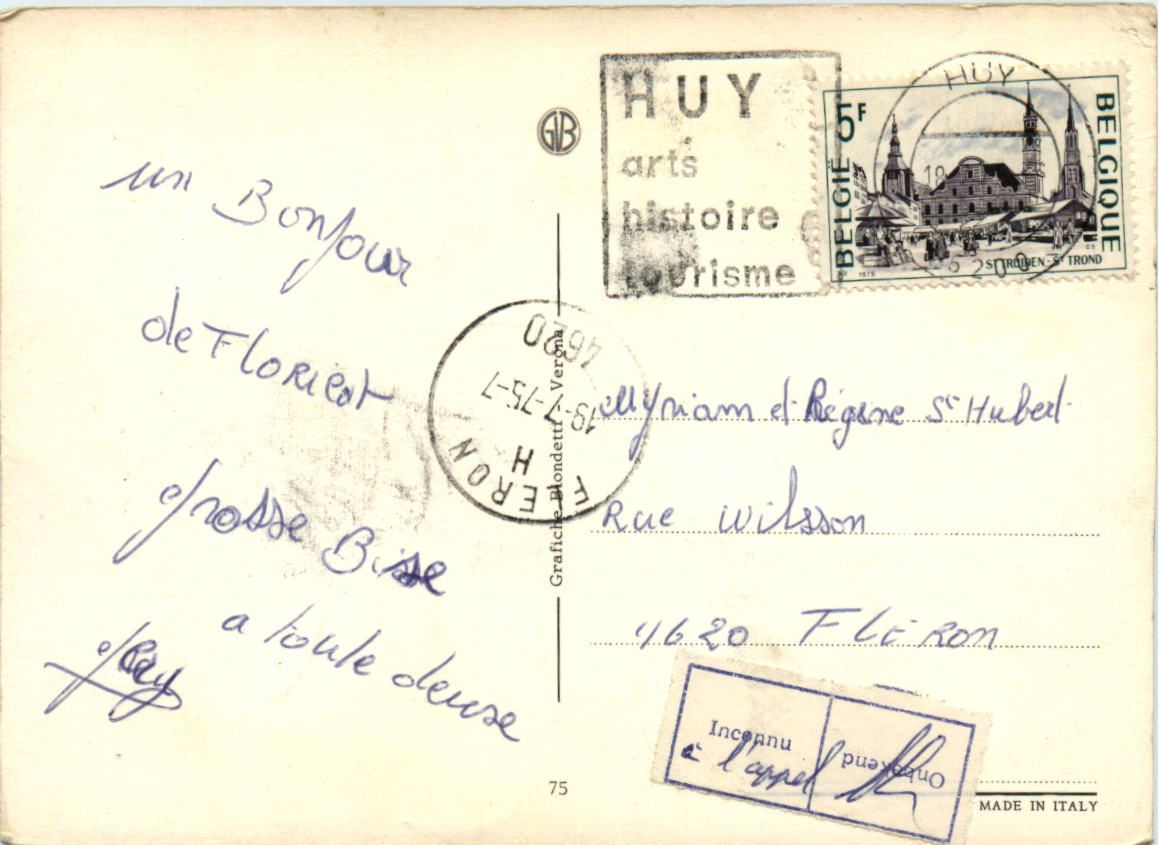 un Bonjour
de FLORiCOt
grosse Bisse
a toute deuse
GVB
HUY
arts
histoire
tourisme
HUY
18
5200
5F
BELGIE
BELGIQUE
ST TRUIDEN - ST TROND
1975
4620
19-7-75-7
H
FLERON
Grafiche Biondetti Verona
Myriam et Régine St Hubert
Rue Wilsson
4620 FLÉRON
Inconnu
à l'appel
Onbekend
75
MADE IN ITALY